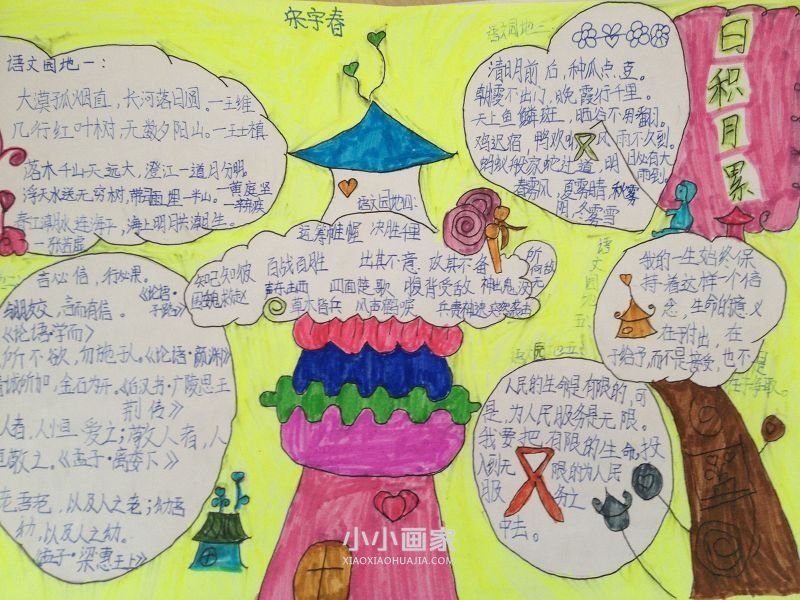 宋宇春
语文园地一：
大漠孤烟直，长河落日圆。—王维
几行红叶树，无数夕阳山。—王士禛
落木千山天远大，澄江一道月分明。
—黄庭坚
浮天水送无穷树，带雨云埋一半山。
—辛弃疾
春江潮水连海平，海上明月共潮生。
言必信，行必果。
《论语·子路》
与朋友交，言而有信。
《论语·学而》
所不欲，勿施于人。《论语·颜渊》
所加，金石为开。《后汉书·广陵思王荆传》
人者，人恒爱之；敬人者，人
恒敬之。《孟子·离娄下》
老吾老，以及人之老；幼吾
幼，以及人之幼。
《孟子·梁惠王上》
语文园地四：
运筹帷幄 决胜千里
知己知彼 百战百胜 出其不意 攻其不备 所向无敌
围魏救赵 声东击西 四面楚歌 腹背受敌 神出鬼没
草木皆兵 风声鹤唳 兵贵神速 突然袭击
语文园地三：
清明前后，种瓜点豆。
朝霞不出门，晚霞行千里。
天上鱼鳞斑，晒谷不用翻。
鸡迟宿，鸭欢，风雨不久到。
蚂蚁搬家蛇过道，明日必有大雨到。
春雾风，夏雾晴，秋雾
阴，冬雾雪
日积月累
语文园地五：
我的一生始终保
持着这样一个信
念，生命的意义
在于付出，在
于给予，而不是接受，也不是
在于争取。
人民的生命是有限的，可
是，为人民服务是无限。
我要把有限的生命，投
入到无限的为人民
服务之
中去。
小小画家
XIAOXIAOHUAJIA.COM